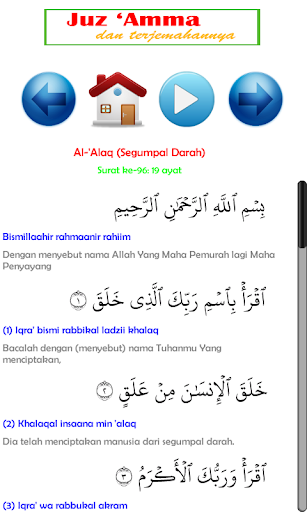 Juz ‘Amma
dan terjemahannya
Al-'Alaq (Segumpal Darah)
Surat ke-96: 19 ayat
بِسْمِ ٱللَّهِ ٱلرَّحْمَٰنِ ٱلرَّحِيمِ
Bismillaahir rahmaanir rahiim
Dengan menyebut nama Allah Yang Maha Pemurah lagi Maha
Penyayang
ٱقْرَأْ بِٱسْمِ رَبِّكَ ٱلَّذِى خَلَقَ ١
(1) Iqra' bismi rabbikal ladzii khalaq
Bacalah dengan (menyebut) nama Tuhanmu Yang
menciptakan,
خَلَقَ ٱلْإِنسَٰنَ مِنْ عَلَقٍ ٢
(2) Khalaqal insaana min 'alaq
Dia telah menciptakan manusia dari segumpal darah.
ٱقْرَأْ وَرَبُّكَ ٱلْأَكْرَمُ ٣
(3) Iqra' wa rabbukal akram